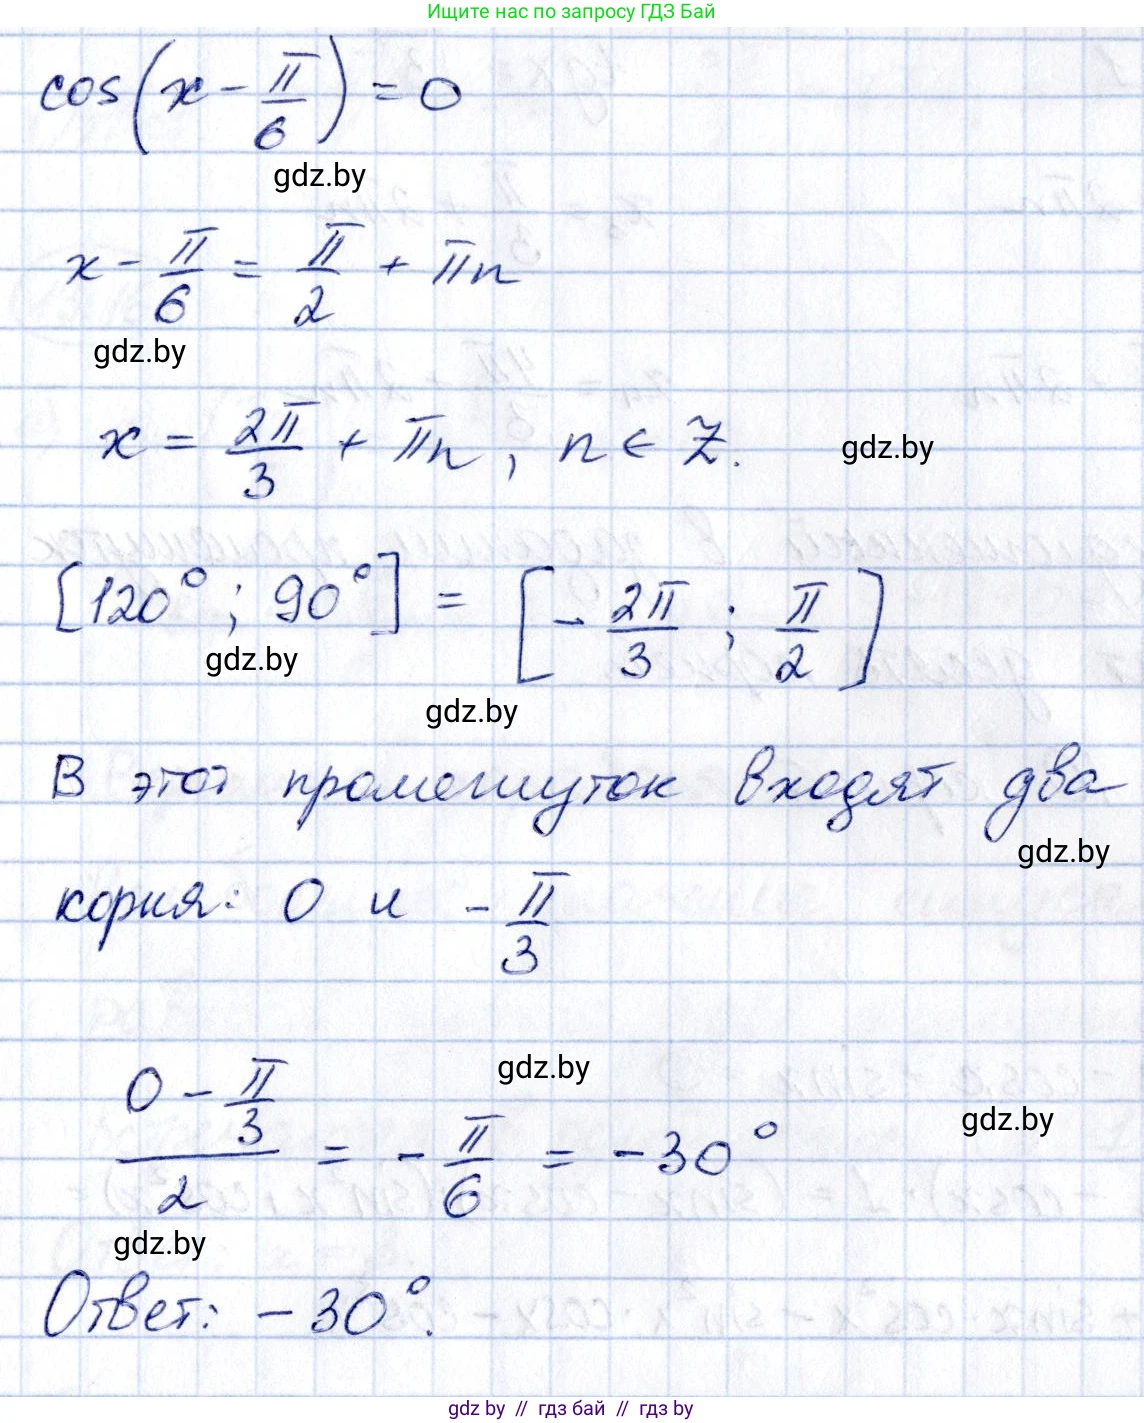 Ищите нас по запросу ГДЗ Бай
cos(x - π/6) = 0
gdz.by
x - π/6 = π/2 + πn
gdz.by
x = 2π/3 + πn, n ∈ Z.
gdz.by
[120°; 90°] = [-2π/3; π/2]
gdz.by
gdz.by
В этот промежуток входят два
gdz.by
корня: 0 и -π/3
gdz.by
(0 - π/3)/2 = -π/6 = -30°
gdz.by
gdz.by
Ответ: -30°.
gdz.by // гдз бай // гдз by